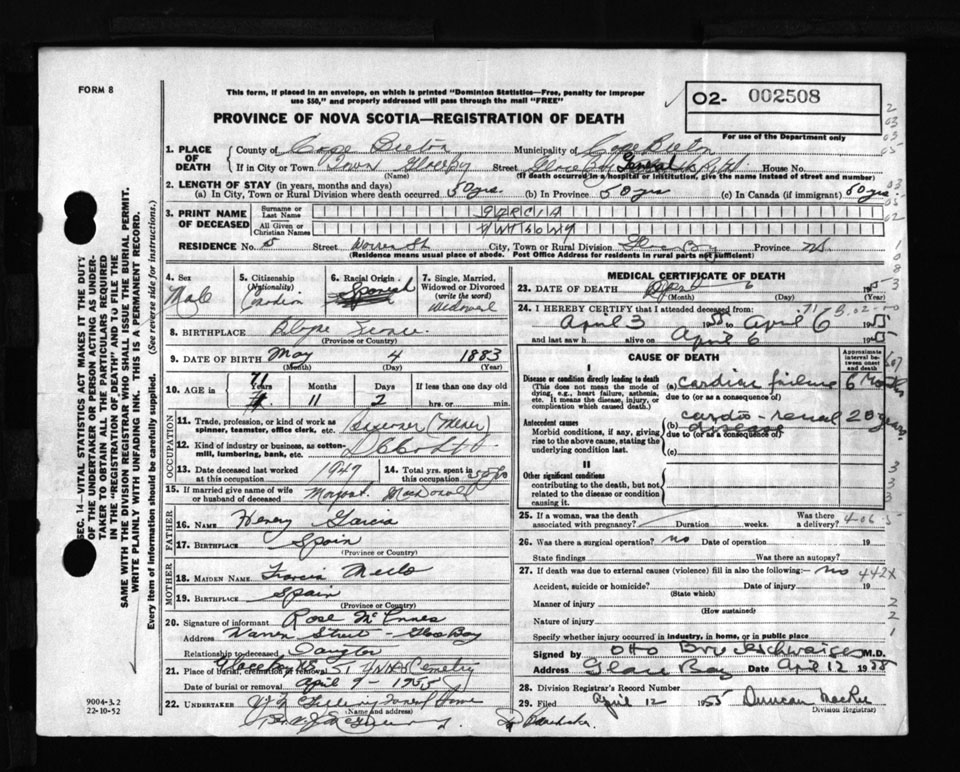 FORM 8
This form, if placed in an envelope, on which is printed "Dominion Statistics—Free, penalty for improper
use $50," and properly addressed will pass through the mail "FREE"
O2- 002508
For use of the Department only
PROVINCE OF NOVA SCOTIA—REGISTRATION OF DEATH
1. PLACE OF DEATH County of Cape Breton Municipality of Cape Breton
If in City or Town Town Glace Bay Street Glace Bay General House No.
(Name) (If death occurred in a hospital or institution, give the name instead of street and number)
2. LENGTH OF STAY (in years, months and days)
(a) In City, Town or Rural Division where death occurred 50 yrs (b) In Province 50 yrs (c) In Canada (if immigrant) 50 yrs.
3. PRINT NAME OF DECEASED Surname or Last Name GARCIA
All Given or Christian Names ANTHONY
RESIDENCE No. 5 Street Warren St City, Town or Rural Division Glace Bay Province NS
(Residence means usual place of abode. Post Office Address for residents in rural parts not sufficient)
4. Sex Male
5. Citizenship (Nationality) Canadian
6. Racial Origin Spanish
7. Single, Married, Widowed or Divorced (write the word) Widowed
8. BIRTHPLACE
(Province or Country)
9. DATE OF BIRTH May 4 1883
(Month) (Day) (Year)
10. AGE in 71 Years 11 Months 2 Days If less than one day old
hrs. or min.
OCCUPATION
11. Trade, profession, or kind of work as spinner, teamster, office clerk, etc. (Miner)
12. Kind of industry or business, as cotton-mill, lumbering, bank, etc.
13. Date deceased last worked at this occupation 1947
14. Total yrs. spent in this occupation
15. If married give name of wife or husband of deceased Margaret MacDonald
FATHER
16. NAME Henry Garcia
17. BIRTHPLACE Spain
(Province or Country)
MOTHER
18. MAIDEN NAME
19. BIRTHPLACE Spain
(Province or Country)
20. Signature of informant Rose McInnes
Address Warren Street - Glace Bay
Relationship to deceased Daughter
21. Place of burial, cremation or removal Glace Bay NS St Anns Cemetery
Date of burial or removal April 9 - 1955
22. UNDERTAKER
(Name and address)
SEC. 14—VITAL STATISTICS ACT MAKES IT THE DUTY
OF THE UNDERTAKER OR PERSON ACTING AS UNDER-
TAKER TO OBTAIN ALL THE PARTICULARS REQUIRED
IN THE "REGISTRATION OF DEATH" AND TO FILE THE
SAME WITH THE DIVISION REGISTRAR WHO SHALL ISSUE THE BURIAL PERMIT.
WRITE PLAINLY WITH UNFADING INK. THIS IS A PERMANENT RECORD.
Every item of information should be carefully supplied. (See reverse side for instructions.)
9004-3.2
22-10-52
MEDICAL CERTIFICATE OF DEATH
23. DATE OF DEATH April 6 1955
(Month) (Day) (Year)
24. I HEREBY CERTIFY that I attended deceased from:
April 3 1955 to April 6 1955
and last saw h alive on April 6 1955
CAUSE OF DEATH
Approximate interval between onset and death
I
Disease or condition directly leading to death
(This does not mean the mode of dying, e.g., heart failure, asthenia, etc. It means the disease, injury, or complication which caused death.)
(a) cardiac failure 6 months
due to (or as a consequence of)
Antecedent causes
Morbid conditions, if any, giving rise to the above cause, stating the underlying condition last.
(b) cardio-renal disease 20 years
due to (or as a consequence of)
(c)
II
Other significant conditions
contributing to the death, but not related to the disease or condition causing it.
25. If a woman, was the death associated with pregnancy? Duration weeks. Was there a delivery?
26. Was there a surgical operation? no Date of operation 19
State findings Was there an autopsy?
27. If death was due to external causes (violence) fill in also the following:— no
Accident, suicide or homicide? Date of injury 19
(State which)
Manner of injury
(How sustained)
Nature of injury
Specify whether injury occurred in industry, in home, or in public place
Signed by Otto M.D.
Address Glace Bay Date April 12 1955
28. Division Registrar's Record Number
29. Filed April 12 1955 Duncan MacRae
Division Registrar)